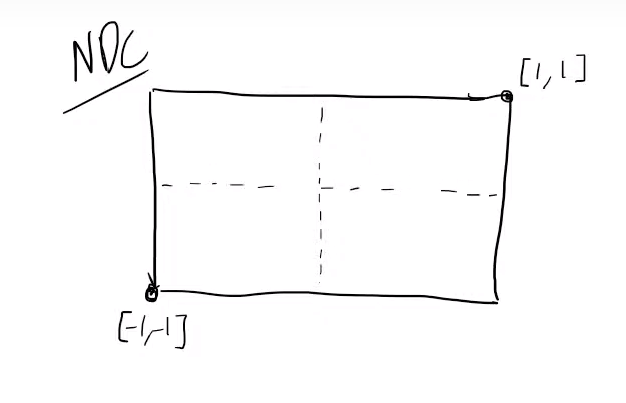 NDC
[1,1]
[-1,-1]